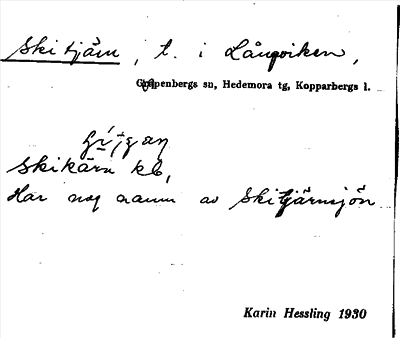 Skitjärn, t. i Långviken,
Grippenbergs sn, Hedemora tg, Kopparbergs l.
Skikärn kb,
Har nog namn av Skitjärnsjön
Karin Hessling 1930